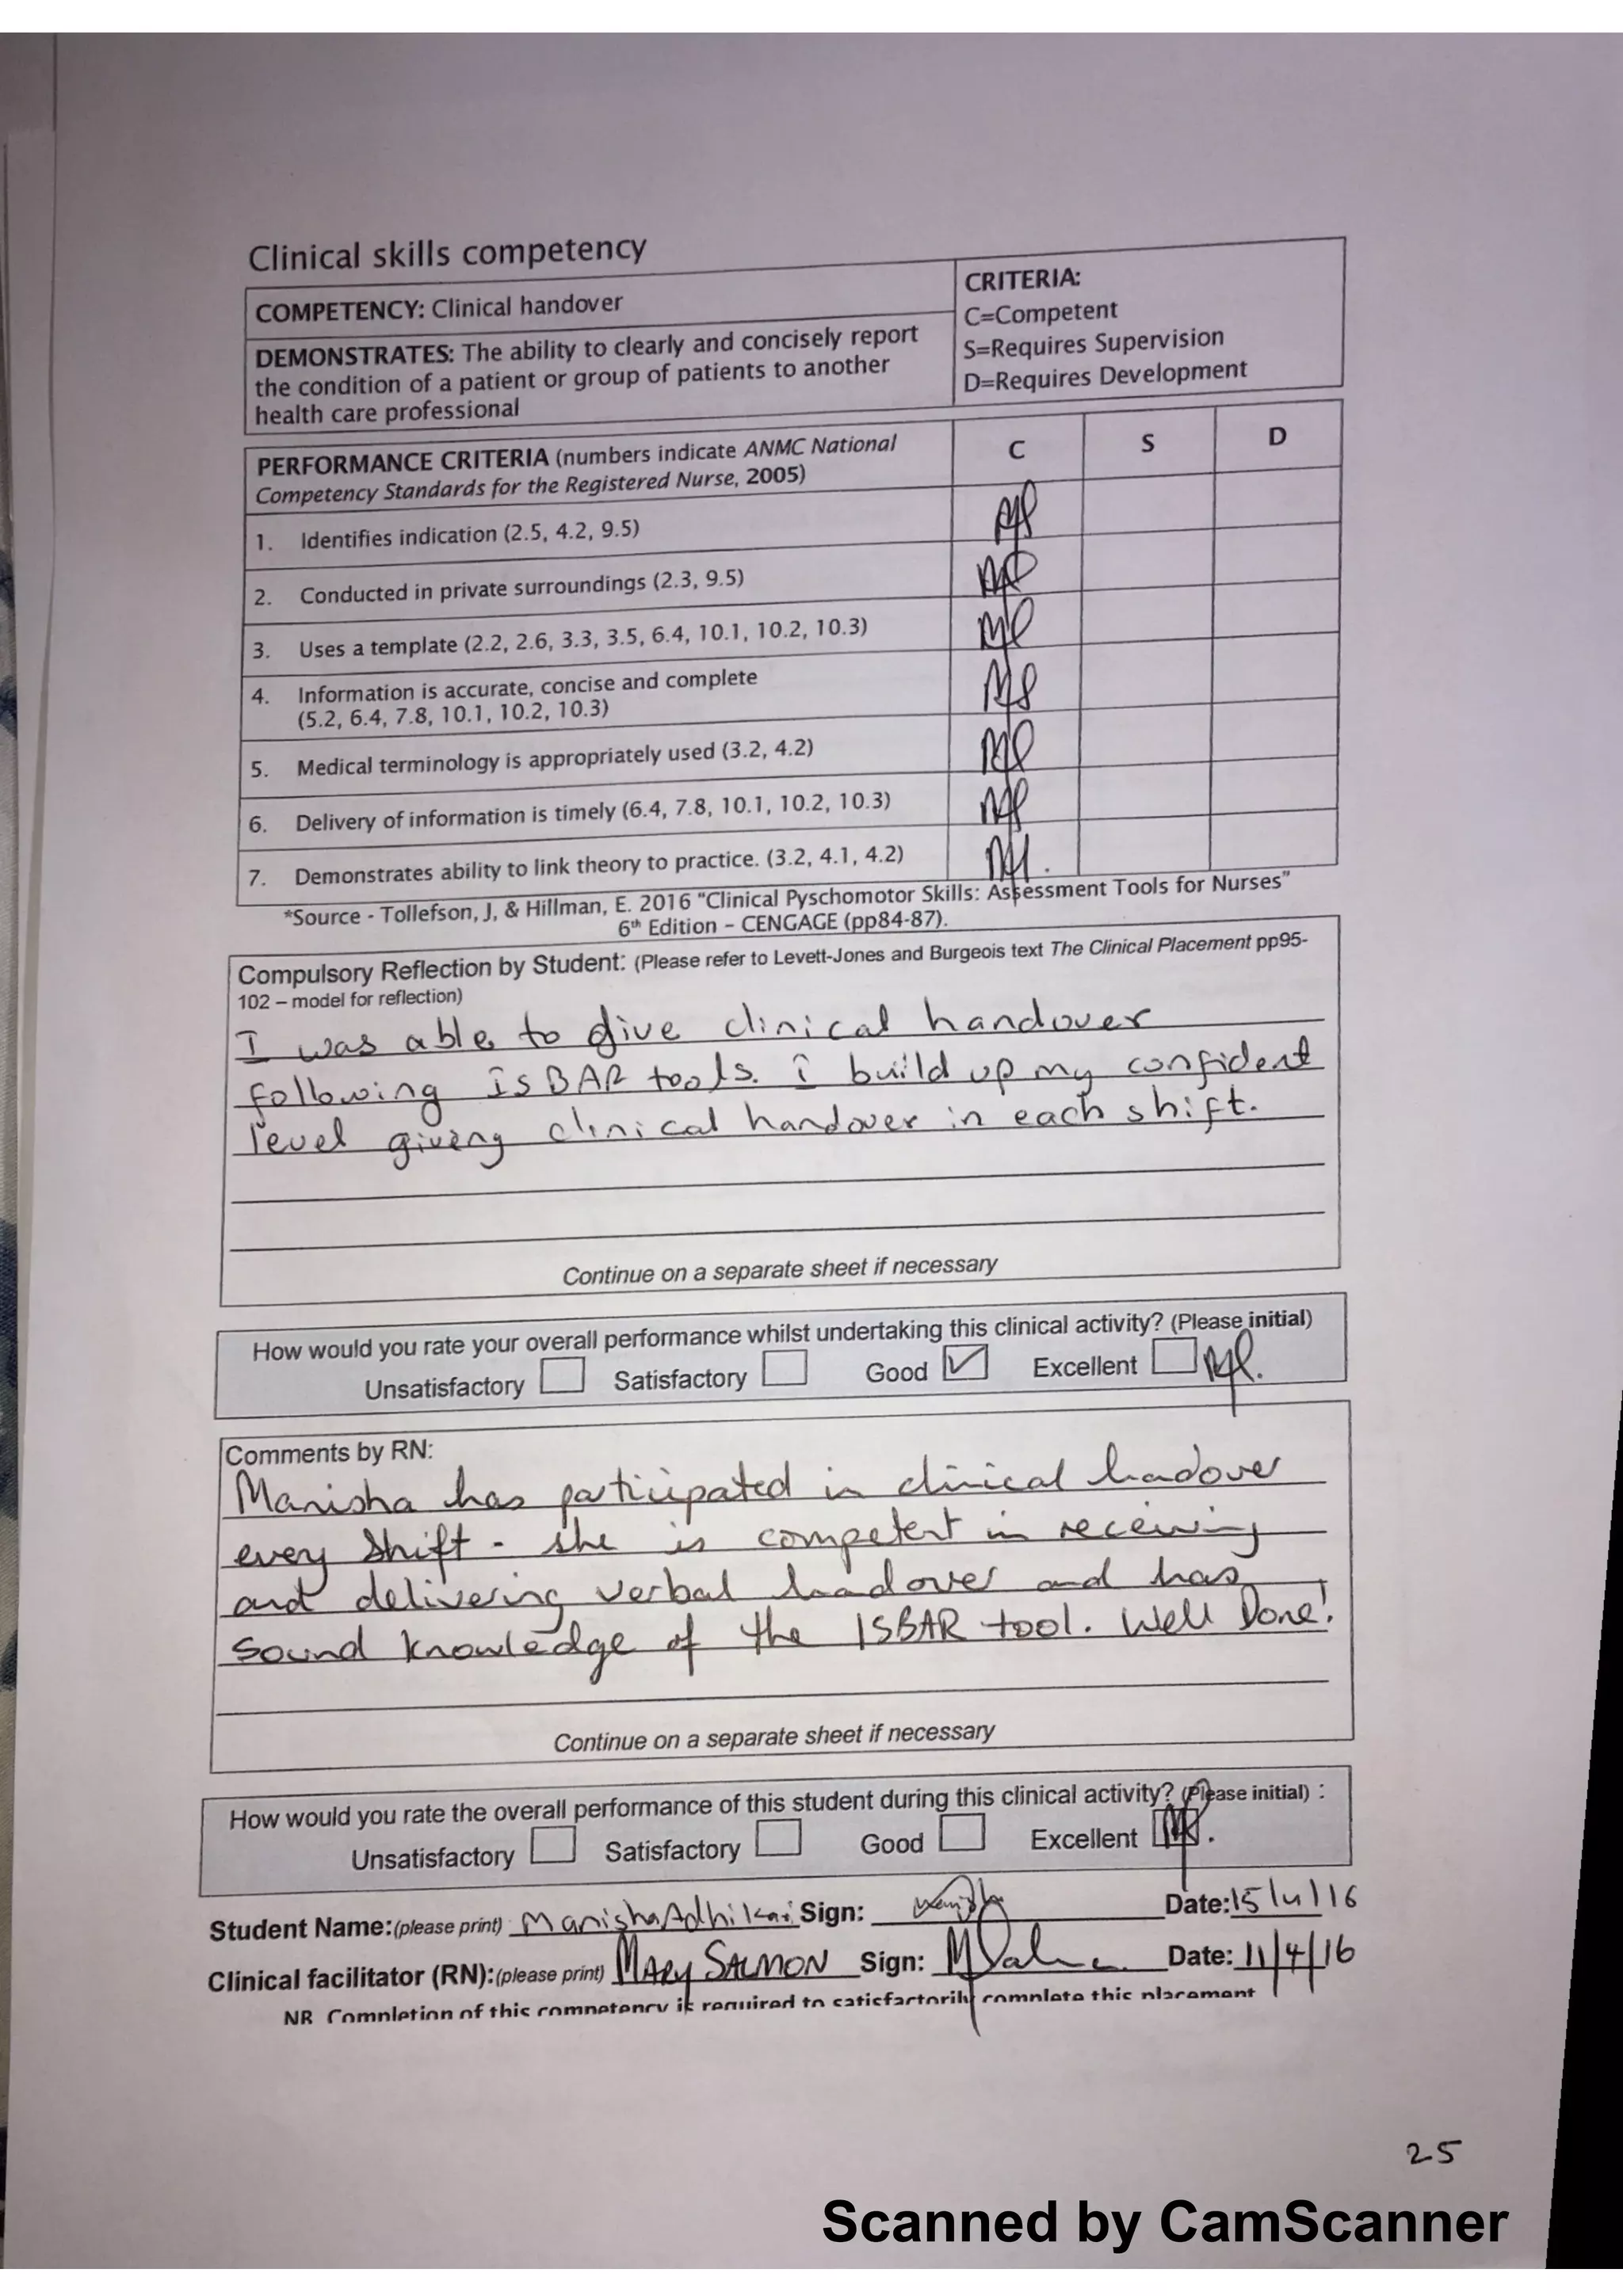 Clinical skills competency
COMPETENCY: Clinical handover
DEMONSTRATES: The ability to clearly and concisely report
the condition of a patient or group of patients to another
health care professional
CRITERIA:
C=Competent
S=Requires Supervision
D=Requires Development
PERFORMANCE CRITERIA (numbers indicate ANMC National
Competency Standards for the Registered Nurse, 2005)
C S D
1. Identifies indication (2.5, 4.2, 9.5)
2. Conducted in private surroundings (2.3, 9.5)
3. Uses a template (2.2, 2.6, 3.3, 3.5, 6.4, 10.1, 10.2, 10.3)
4. Information is accurate, concise and complete
(5.2, 6.4, 7.8, 10.1, 10.2, 10.3)
5. Medical terminology is appropriately used (3.2, 4.2)
6. Delivery of information is timely (6.4, 7.8, 10.1, 10.2, 10.3)
7. Demonstrates ability to link theory to practice. (3.2, 4.1, 4.2)
*Source - Tollefson, J, & Hillman, E. 2016 "Clinical Pyschomotor Skills: Assessment Tools for Nurses"
6th Edition – CENGAGE (pp84-87).
Compulsory Reflection by Student: (Please refer to Levett-Jones and Burgeois text The Clinical Placement pp95-
102 – model for reflection)
I was able to give clinical handover
following ISBAR tools. i build up my confident
level giving clinical handover in each shift.
Continue on a separate sheet if necessary
How would you rate your overall performance whilst undertaking this clinical activity? (Please initial)
Unsatisfactory Satisfactory Good ✓ Excellent
Comments by RN:
Manisha has participated in clinical handover
every shift - she is competent in receiving
and delivering verbal handover and has
sound knowledge of the ISBAR tool. Well Done!
Continue on a separate sheet if necessary
How would you rate the overall performance of this student during this clinical activity? (Please initial) :
Unsatisfactory Satisfactory Good Excellent
Student Name:(please print) Manisha Adhikari Sign: Date:15/4/16
Clinical facilitator (RN):(please print) MARY SALMON Sign: Date: 11/4/16
NB Completion of this competency is required to satisfactorily complete this placement
25
Scanned by CamScanner